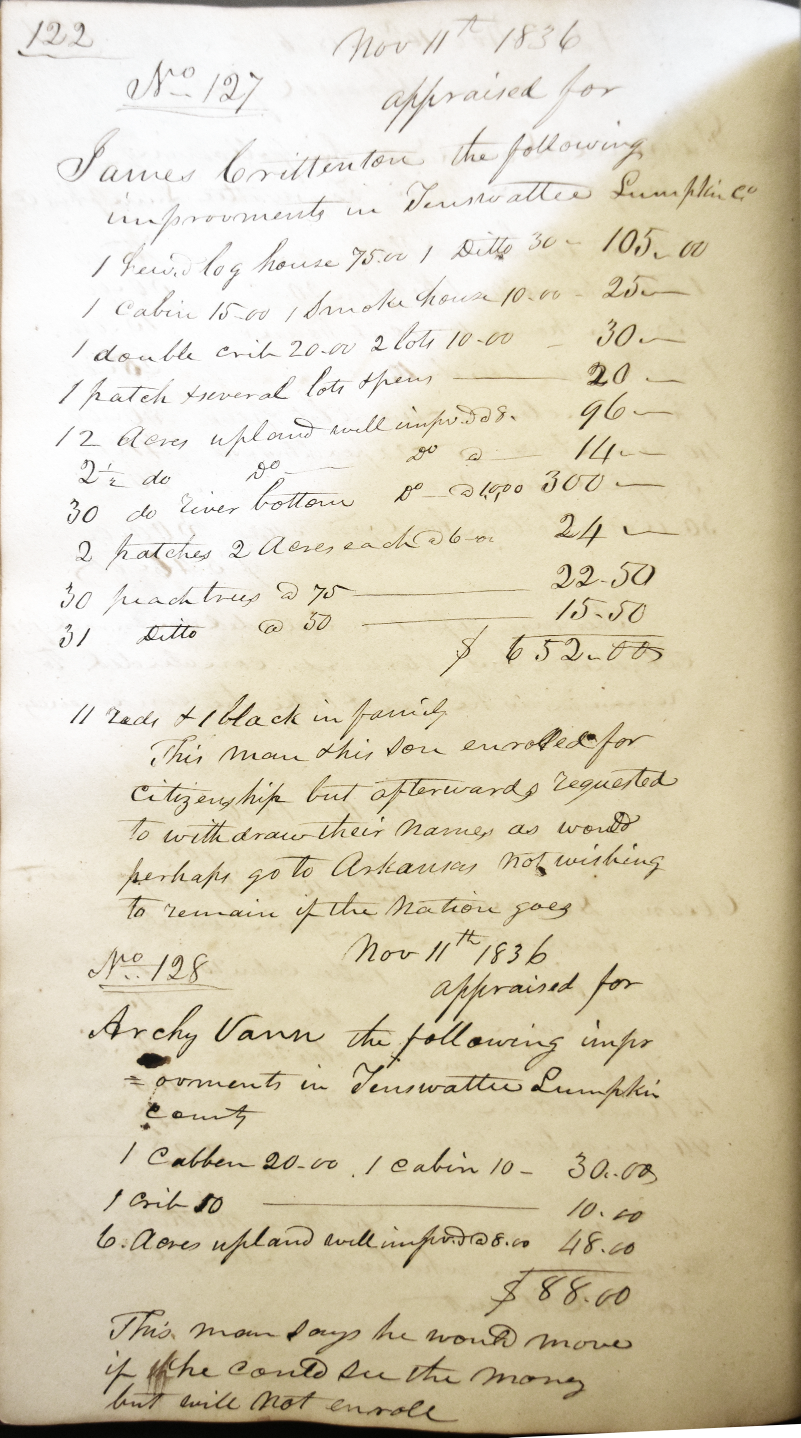 122
Nov 11th 1836
No. 127
appraised for
James Crittenton the following
improvments in Tenswattee Lumpkin Co
1 hew.d log house 75.00 1 Ditto 30 - 105.00
1 cabin 15-00 1 Smoke house 10-00 - 25.—
1 double crib 20-00 2 lots 10-00 - 30.—
1 patch & several lots & pens — 20 —
12 Acres upland well impv.d @ 8. 96.—
2½ do Do — Do @ — 14.—
30 do river bottom Do — @ 10,00 300 —
2 patches 2 Acres each @ 6-00 24 —
30 peach trees @ 75 — 22-50
31 Ditto @ 50 — 15-50
$ 652-00
11 reds & 1 black in family
This man & his son enrolled for
citizenship but afterwards requested
to withdraw their names as would
perhaps go to Arkansas not wishing
to remain if the Nation goes
No. 128
Nov 11th 1836
appraised for
Archy Vann the following impr
=ovments in Tenswattee Lumpkin
county
1 Cabben 20-00. 1 cabin 10 - 30.00
1 crib 10 — 10.00
6. Acres upland well impv.d @ 8.00 48.00
$ 88.00
This man says he would move
if he could see the money
but will not enroll